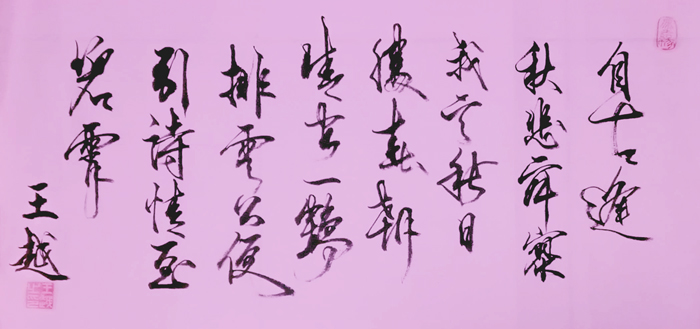 自古逢
秋悲寂寥
我言秋日
勝春朝
晴空一鶴
排雲上便
引詩情到
碧霄
王越